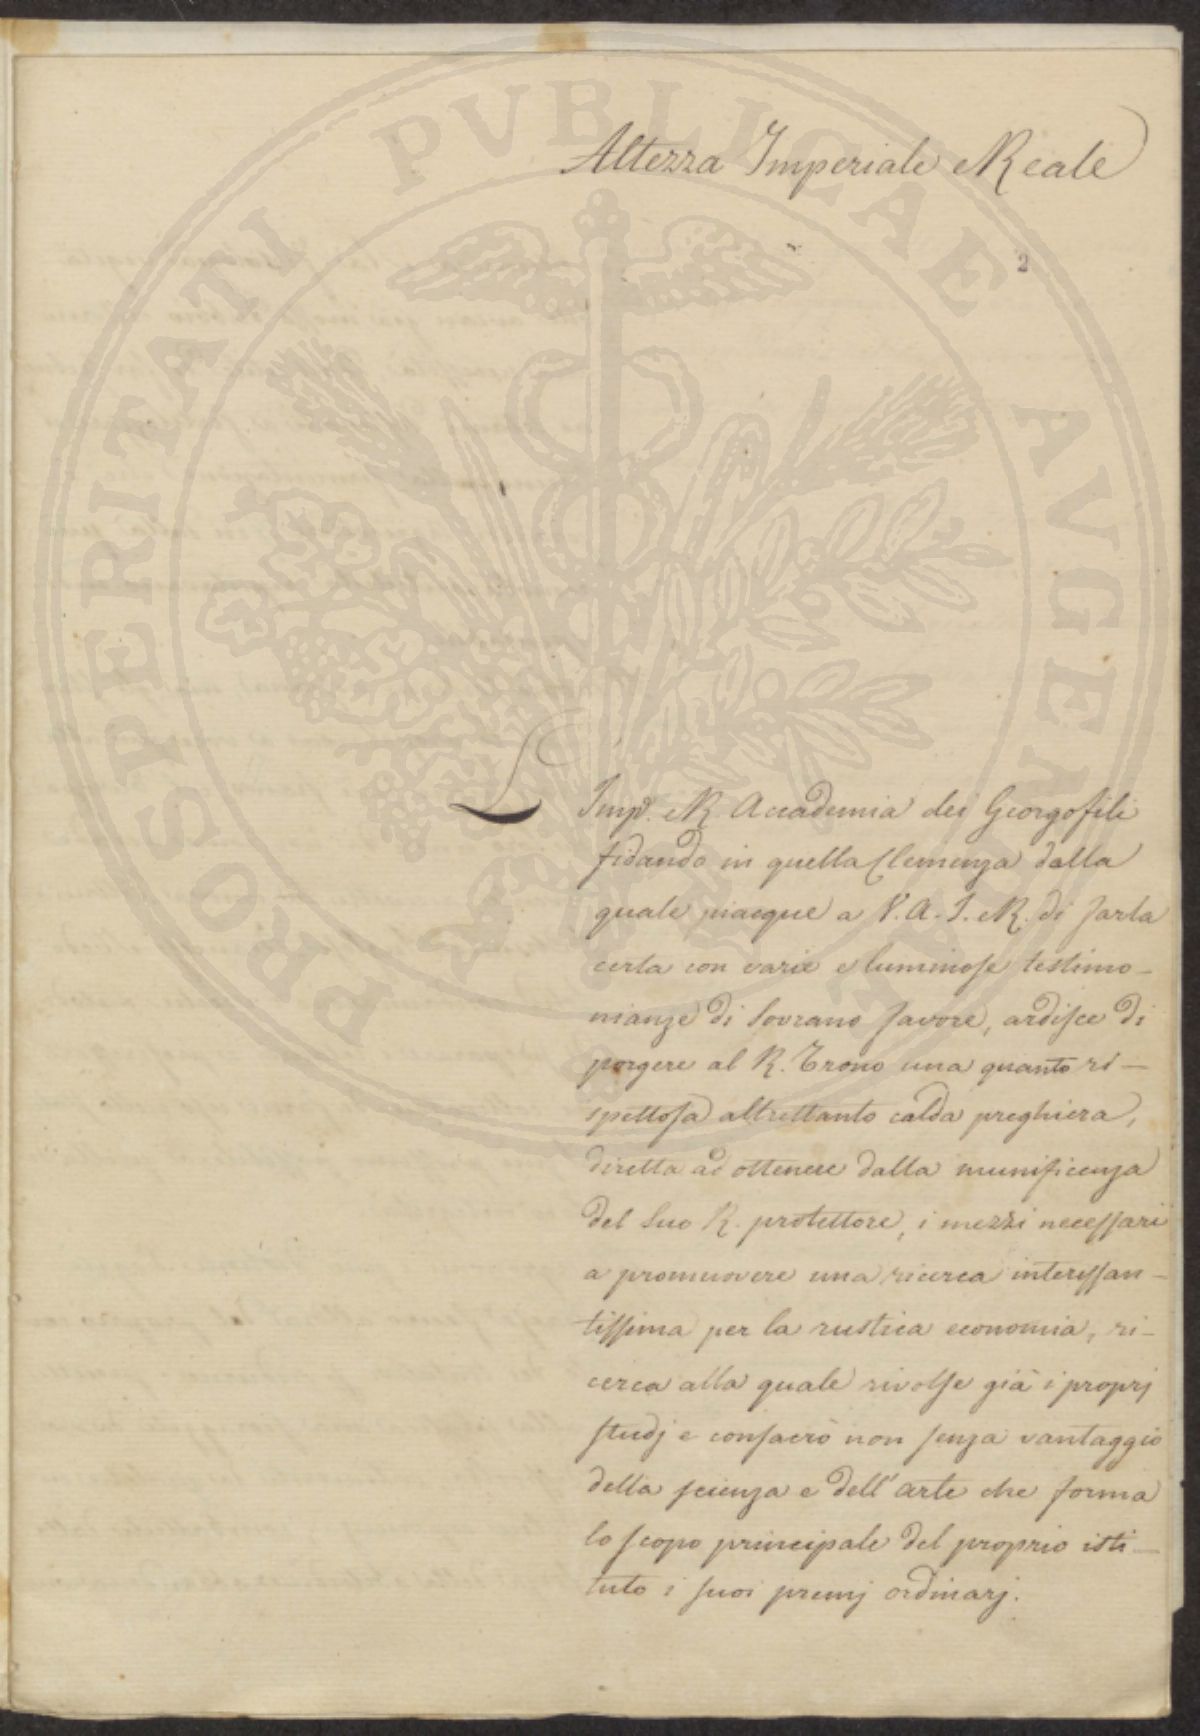 Altezza Imperiale e Reale
2
L' Imp. e R. Accademia dei Georgofili
fidando in quella Clemenza dalla
quale piacque a V. A. I. e R. di farla
certa con varie e luminose testimo-
nianze di Sovrano favore, ardisce di
porgere al R. Trono una quanto ri-
spettosa altrettanto calda preghiera,
diretta ad ottenere dalla munificenza
del Suo R. protettore, i mezzi necessari
a promuovere una ricerca interessan-
tissima per la rustica economia, ri-
cerca alla quale rivolse già i proprj
studj e consacrò non senza vantaggio
della scienza e dell'arte che forma
lo scopo principale del proprio isti-
tuto i suoi premj ordinarj.
PROSPERITATI PVBLICAE AVGENDAE